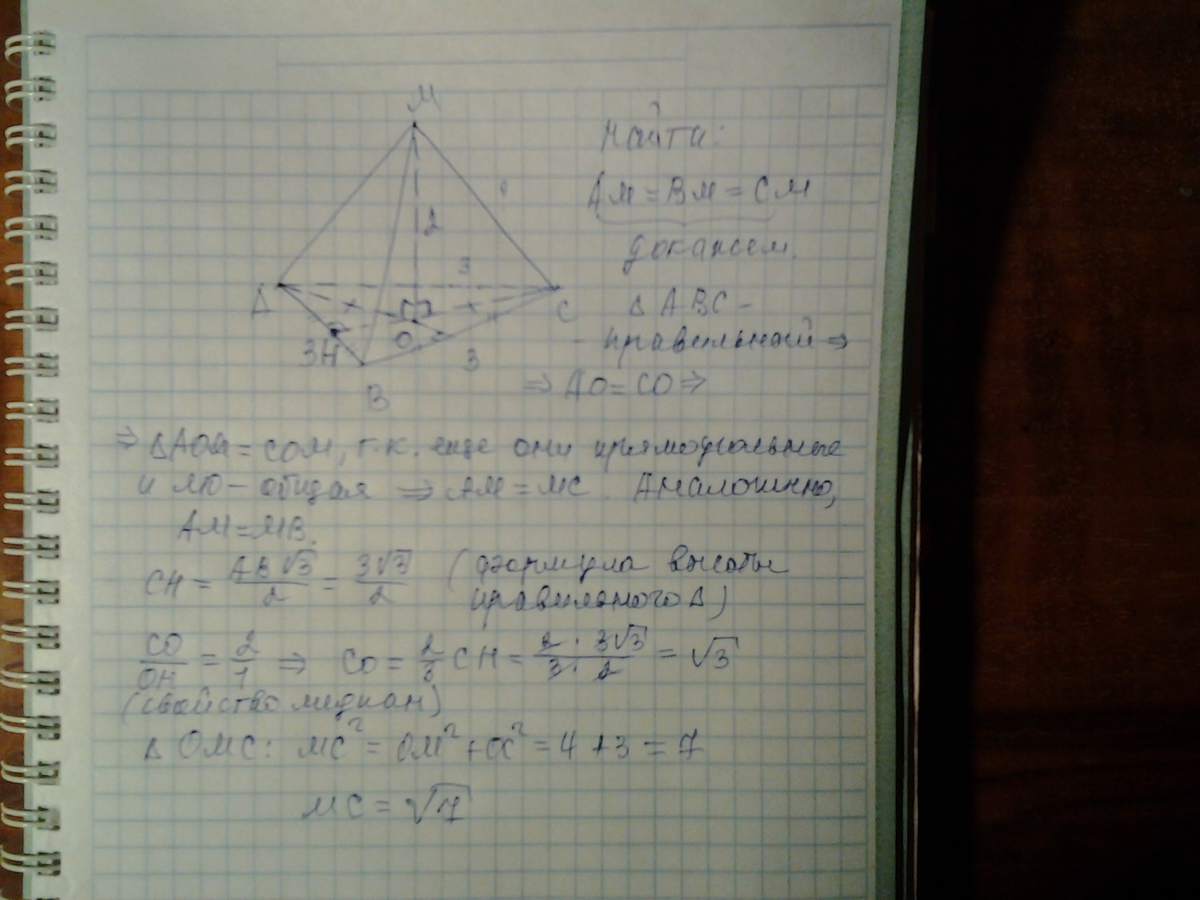 M
2
3
A
C
O
3 H
3
B
Найти:
AM = BM = CM
докажем.
Δ ABC -
- правильный ⇒
⇒ AO = CO ⇒
⇒ ΔAOM = COM, т.к. еще они прямоугольные
и MO - общая ⇒ AM = MC. Аналогично,
AM = MB.
CH = AB√3/2 = 3√3/2 (формула высоты
правильного Δ)
CO/OH = 2/1 ⇒ CO = 2/3 CH = 2 · 3√3/3 · 2 = √3
(свойство медиан)
Δ OMC: MC² = OM² + OC² = 4 + 3 = 7
MC = √7